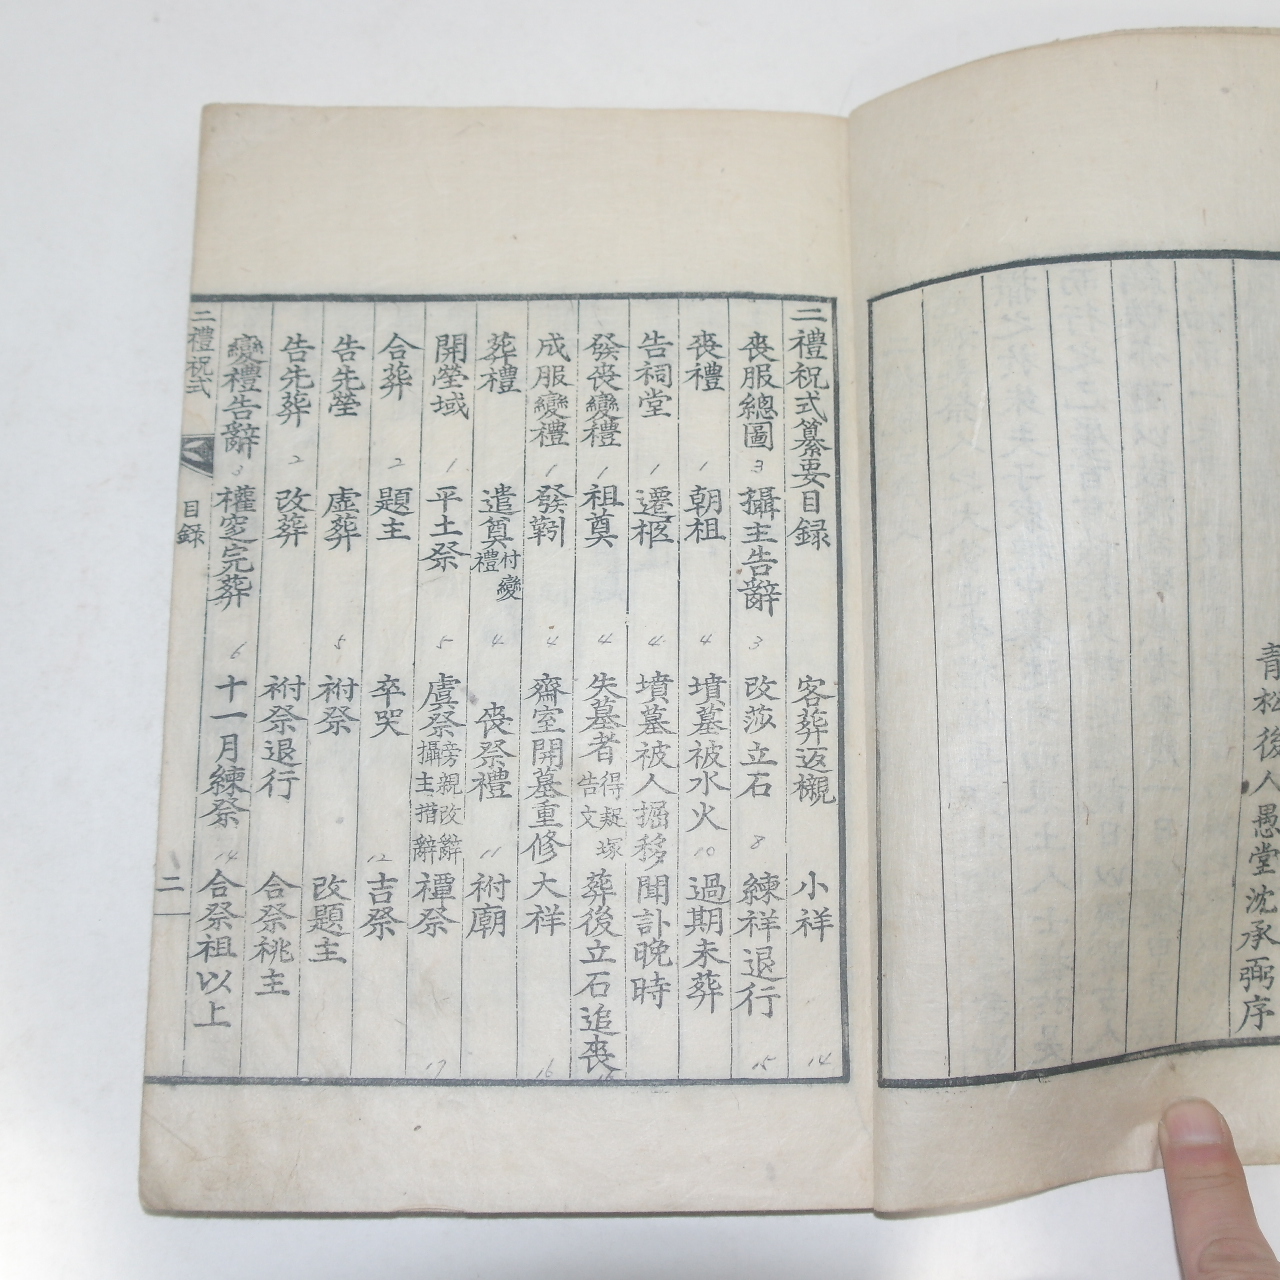 青松後人愚堂沈承弼序
二禮祝式纂要目録 客葬返櫬 小祥 14
喪服總圖 3 攝主告辭 3 改莎立石 8 練祥退行 15
喪禮 1 朝祖 4 墳墓被水火 10 過期未葬
告祠堂 1 遷柩 4 墳墓被人掘移 聞訃晩時
發喪變禮 1 祖奠 4 失墓者得疑塚告文 葬後立石追喪
成服變禮 1 發靷 4 齋室開墓重修 大祥 16
葬禮 遣奠付變禮 4 喪祭禮 11 祔廟
開塋域 1 平土祭 5 虞祭旁親改辭攝主措辭 禫祭 17
合葬 2 題主 卒哭 12 吉祭
告先塋 虛葬 5 祔祭 改題主
告先葬 2 改葬 祔祭退行 合祭祧主
變禮告辭 3 權窆完葬 6 十一月練祭 14 合祭祖以上
二禮祝式 目録 二